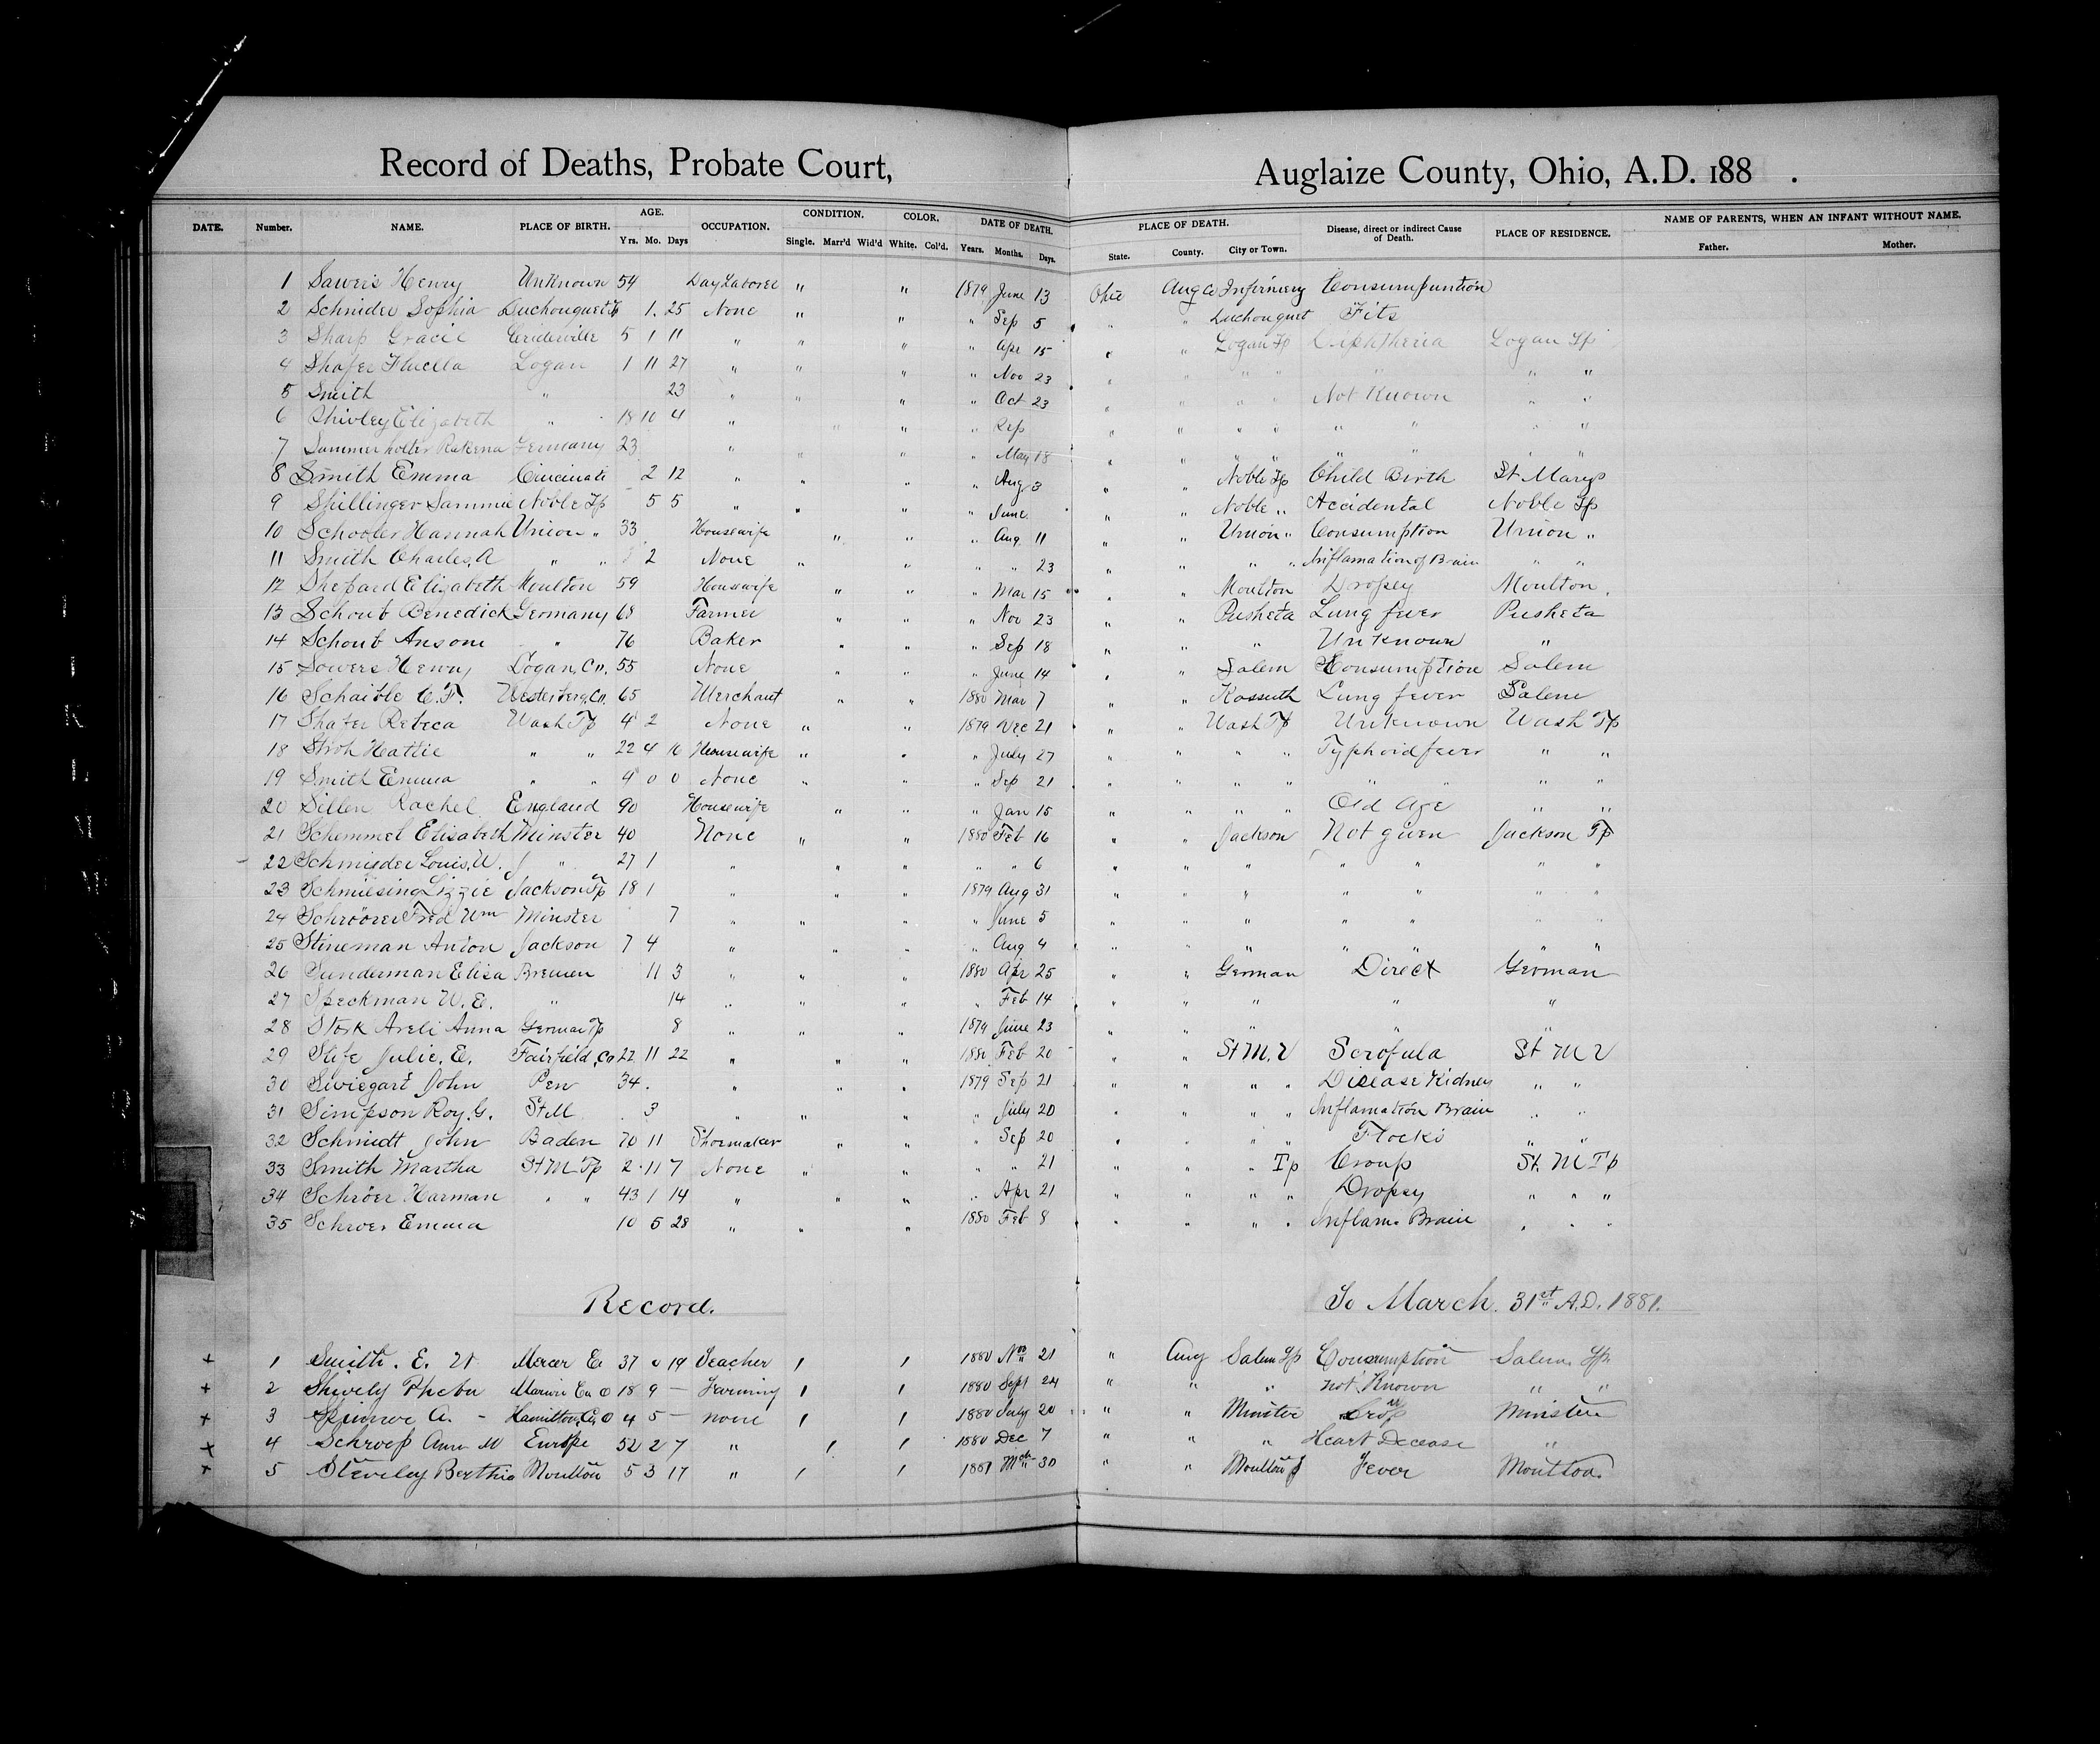 Record of Deaths, Probate Court, Auglaize County, Ohio, A.D. 188 .
DATE. Number. NAME. PLACE OF BIRTH. AGE. OCCUPATION. CONDITION. COLOR. DATE OF DEATH. PLACE OF DEATH. Disease, direct or indirect Cause of Death. PLACE OF RESIDENCE. NAME OF PARENTS, WHEN AN INFANT WITHOUT NAME.
Yrs. Mo. Days Single. Marr'd Wid'd White. Col'd. Years. Months. Days. State. County. City or Town. Father. Mother.
1 Sawers Henry Unknown 54 Day Laborer " " 1879 June 13 Ohio Aug Co Infirmery Consumpuntion
2 Schnider Sophia Duchouquet Tp 1. 25 None " " " Sep 5 " " Duchouquet Fits
3 Sharp Gracie Cridersville 5 1 11 " " " " Apr 15 " " Logan Tp Diphtheria Logan Tp
4 Shafer Logan 1 11 27 " " " " Nov 23 " " " " " " "
5 Smith " 23 " " " " Oct 23 " " " " Not Known " "
6 Shivley Elizabeth " 18 10 4 " " " " Sep " " " " " " " "
7 Germany 23 " " " " May 18 " " " " " " " "
8 Smith Emma Cincinati 2 12 " " " " Aug 3 " " Noble Tp Child Birth St Marys
9 Spillinger Sammie Noble Tp 5 5 " " " " June " " Noble " Accidental Noble Tp
10 Schooler Hannah Union " 33 Housewife " " " Aug 11 " " Union " Consumption Union "
11 Smith Charles, A " " 2 None " " " " 23 " " " " Inflamation of Brain " "
12 Shepard Elizabeth Moulton 59 Housewife " " " Mar 15 " " Moulton Dropsy Moulton
13 Schoub Benedick Germany 68 Farmer " " " Nov 23 " " Pusheta Lung fever Pusheta
14 Schoub Ansom " 76 Baker " " " Sep 18 " " " Unknown "
15 Sowers Henry Logan, Co. 55 None " " " June 14 " " Salem Consumption Salem
16 Schaible C. F. 65 Merchant " " 1880 Mar 7 " " Kossuth Lung fever Salem
17 Shafer Rebeca Wash Tp 4 2 None " " 1879 Dec 21 " " Wash Tp Unknown Wash Tp
18 Stroh Hattie " " 22 4 16 Housewife " " " July 27 " " " " Typhoid fever " "
19 Smith Emma " " 4 0 0 None " " " Sep 21 " " " " " " " "
20 Sillen Rachel England 90 Housewife " " " Jan 15 " " " " Old Age " "
21 Schemmel Elisabeth Minster 40 None " " 1880 Feb 16 " " Jackson Not given Jackson Tp
22 Schmieder Louis, W. " 27 1 " " " " " 6 " " " " " " "
23 Schmiesing Lizzie Jackson Tp 18 1 " " " 1879 Aug 31 " " " " " " "
24 Schröorer Fred Wm Minster 7 " " " " June 5 " " " " " " "
25 Stineman Anton Jackson 7 4 " " " " Aug 4 " " " " " " "
26 Sunderman Elisa Bremen 11 3 " " " 1880 Apr 25 " " German Direct German
27 Speckman W. E. " 14 " " " " Feb 14 " " " " "
28 Stork Areli Anna German Tp 8 " " " 1879 June 23 " " " " "
29 Stife Julie. E. Fairfield, Co 22 11 22 " " " 1880 Feb 20 " " St M. V Scrofula St M V
30 Swiegart John Pen 34. " " " 1879 Sep 21 " " " " Disease Kidney " "
31 Simpson Roy. G. St M 3 " " " " July 20 " " " " Inflamation Brain " "
32 Schmidt John Baden 70 11 Shoemaker " " " Sep 20 " " " " " "
33 Smith Martha St M Tp 2 11 7 None " " " " 21 " " " Tp Croup St. M Tp
34 Schröer Harman " " 43 1 14 " " " " Apr 21 " " " " Dropsy " " "
35 Schroer Emma 10 5 28 " " " 1880 Feb 8 " " " " Inflam. Brain " " "
Record. To March. 31st A.D. 1881.
+ 1 Smith. E. W Mercer Co 37 0 19 Teacher 1 1 1880 Nov 21 " Aug Salem Tp Consumption Salem Tp
+ 2 Shively Pheba Marion Co O 18 9 – Farming 1 1 1880 Sept 24 " " " not Known " "
+ 3 A. - Hamilton, Co, O 4 5 – none 1 1 1880 July 20 " " Minster Minster
+ 4 Schroep Ann M Europe 52 2 7 " 1 1 1880 Dec 7 " " " Heart Decease "
+ 5 Berthie Moulton 5 3 17 " 1 1 1881 Mch 30 " " Moulton Fever Moulton